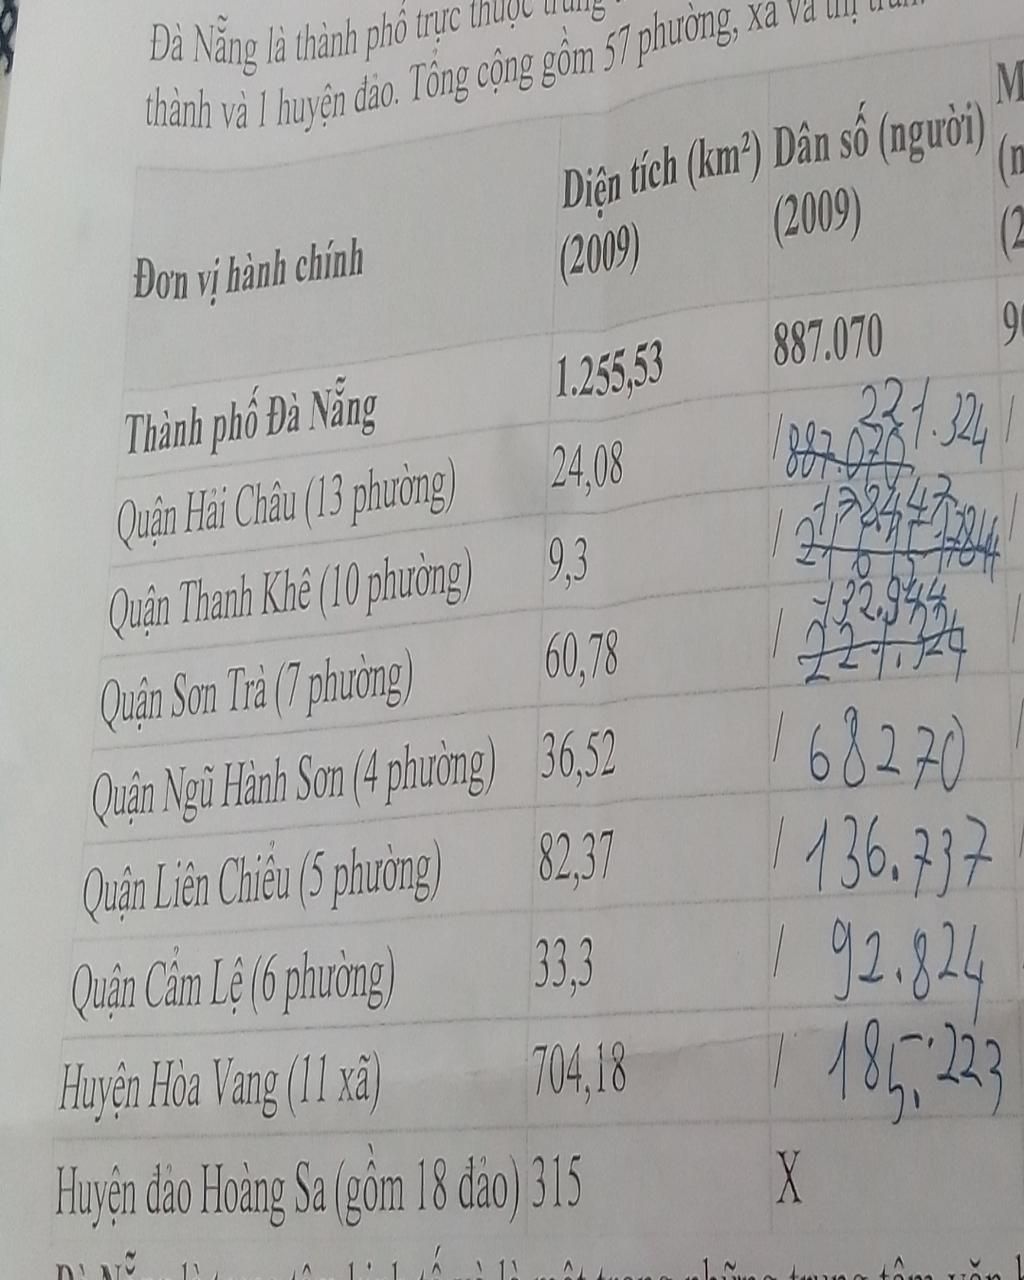 Đà Nẵng là thành phố trực thuộc trung
thành và 1 huyện đảo. Tổng cộng gồm 57 phường, xã và thị
Đơn vị hành chính Diện tích (km²) (2009) Dân số (người) (2009)
Thành phố Đà Nẵng 1.255,53 887.070
Quận Hải Châu (13 phường) 24,08 / 887.070 221.324 /
Quận Thanh Khê (10 phường) 9,3 / 178447 /
Quận Sơn Trà (7 phường) 60,78 / 132.944 221.324 /
Quận Ngũ Hành Sơn (4 phường) 36,52 / 68270 /
Quận Liên Chiểu (5 phường) 82,37 / 136.737 /
Quận Cẩm Lệ (6 phường) 33,3 / 92.824
Huyện Hòa Vang (11 xã) 704,18 / 185.223
Huyện đảo Hoàng Sa (gồm 18 đảo) 315 X